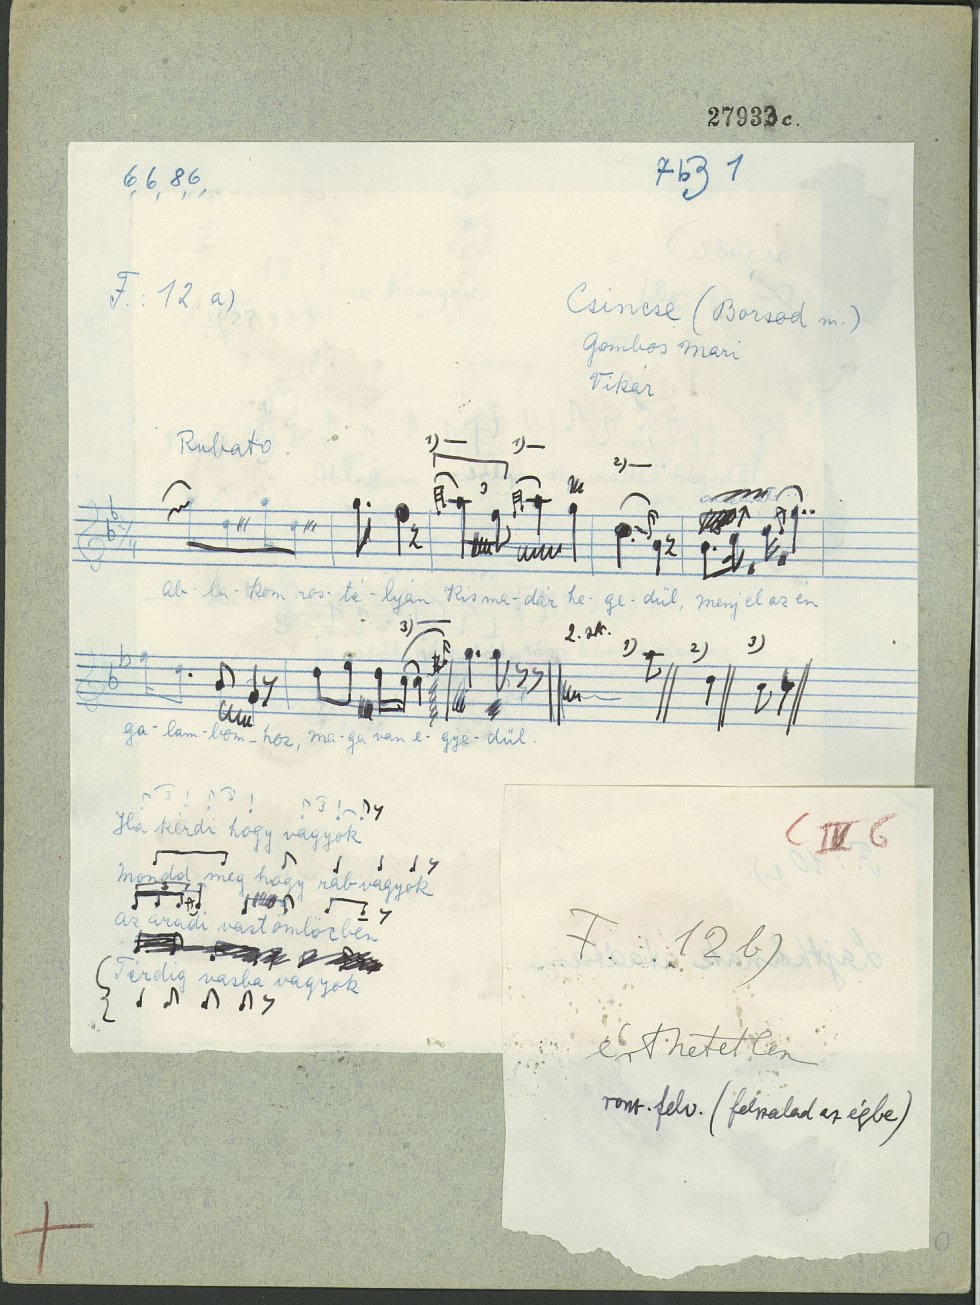 27933c.
6, 6, 8, 6,
7b3 1
F.: 12. a)
Csincse (Borsod m.)
Gombos Mari
Vikár
Rubato
1) 3 1) 2)
ab-la-kom ros-té-lyán Kis ma-dár he-ge-dül, menj el az én
3) 2. sk. 1) 2) 3)
ga-lam-bom-hoz, ma-ga van e-gye-dül.
3 3 3
Ha kérdi hogy vagyok
Mondd meg hogy rab vagyok
az aradi vastömlöcben
Térdig vasba vagyok
C IV 6
F. : 12 b)
érthetetlen
ront. felv. (felszalad az égbe)